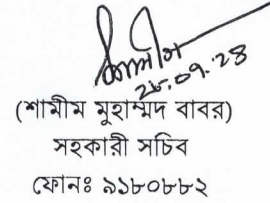 ২৮.০৭.২৪
(শামীম মুহাম্মদ বাবর)
সহকারী সচিব
ফোনঃ ৯১৮০৮৮২